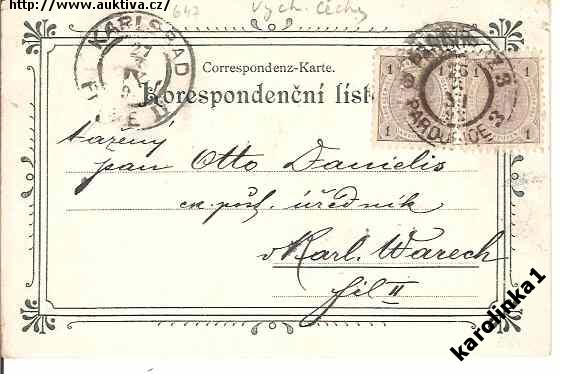 http://www.auktiva.cz/
647
Vých. Čechy
KARLSBAD
Correspondenz-Karte.
Korespondenční líst
1 1 1 1
PARDUBICE 3
Vážený
pan Otto Danielis
ck. pošt. úředník
v Karl. Varech
fil II
karolinka1